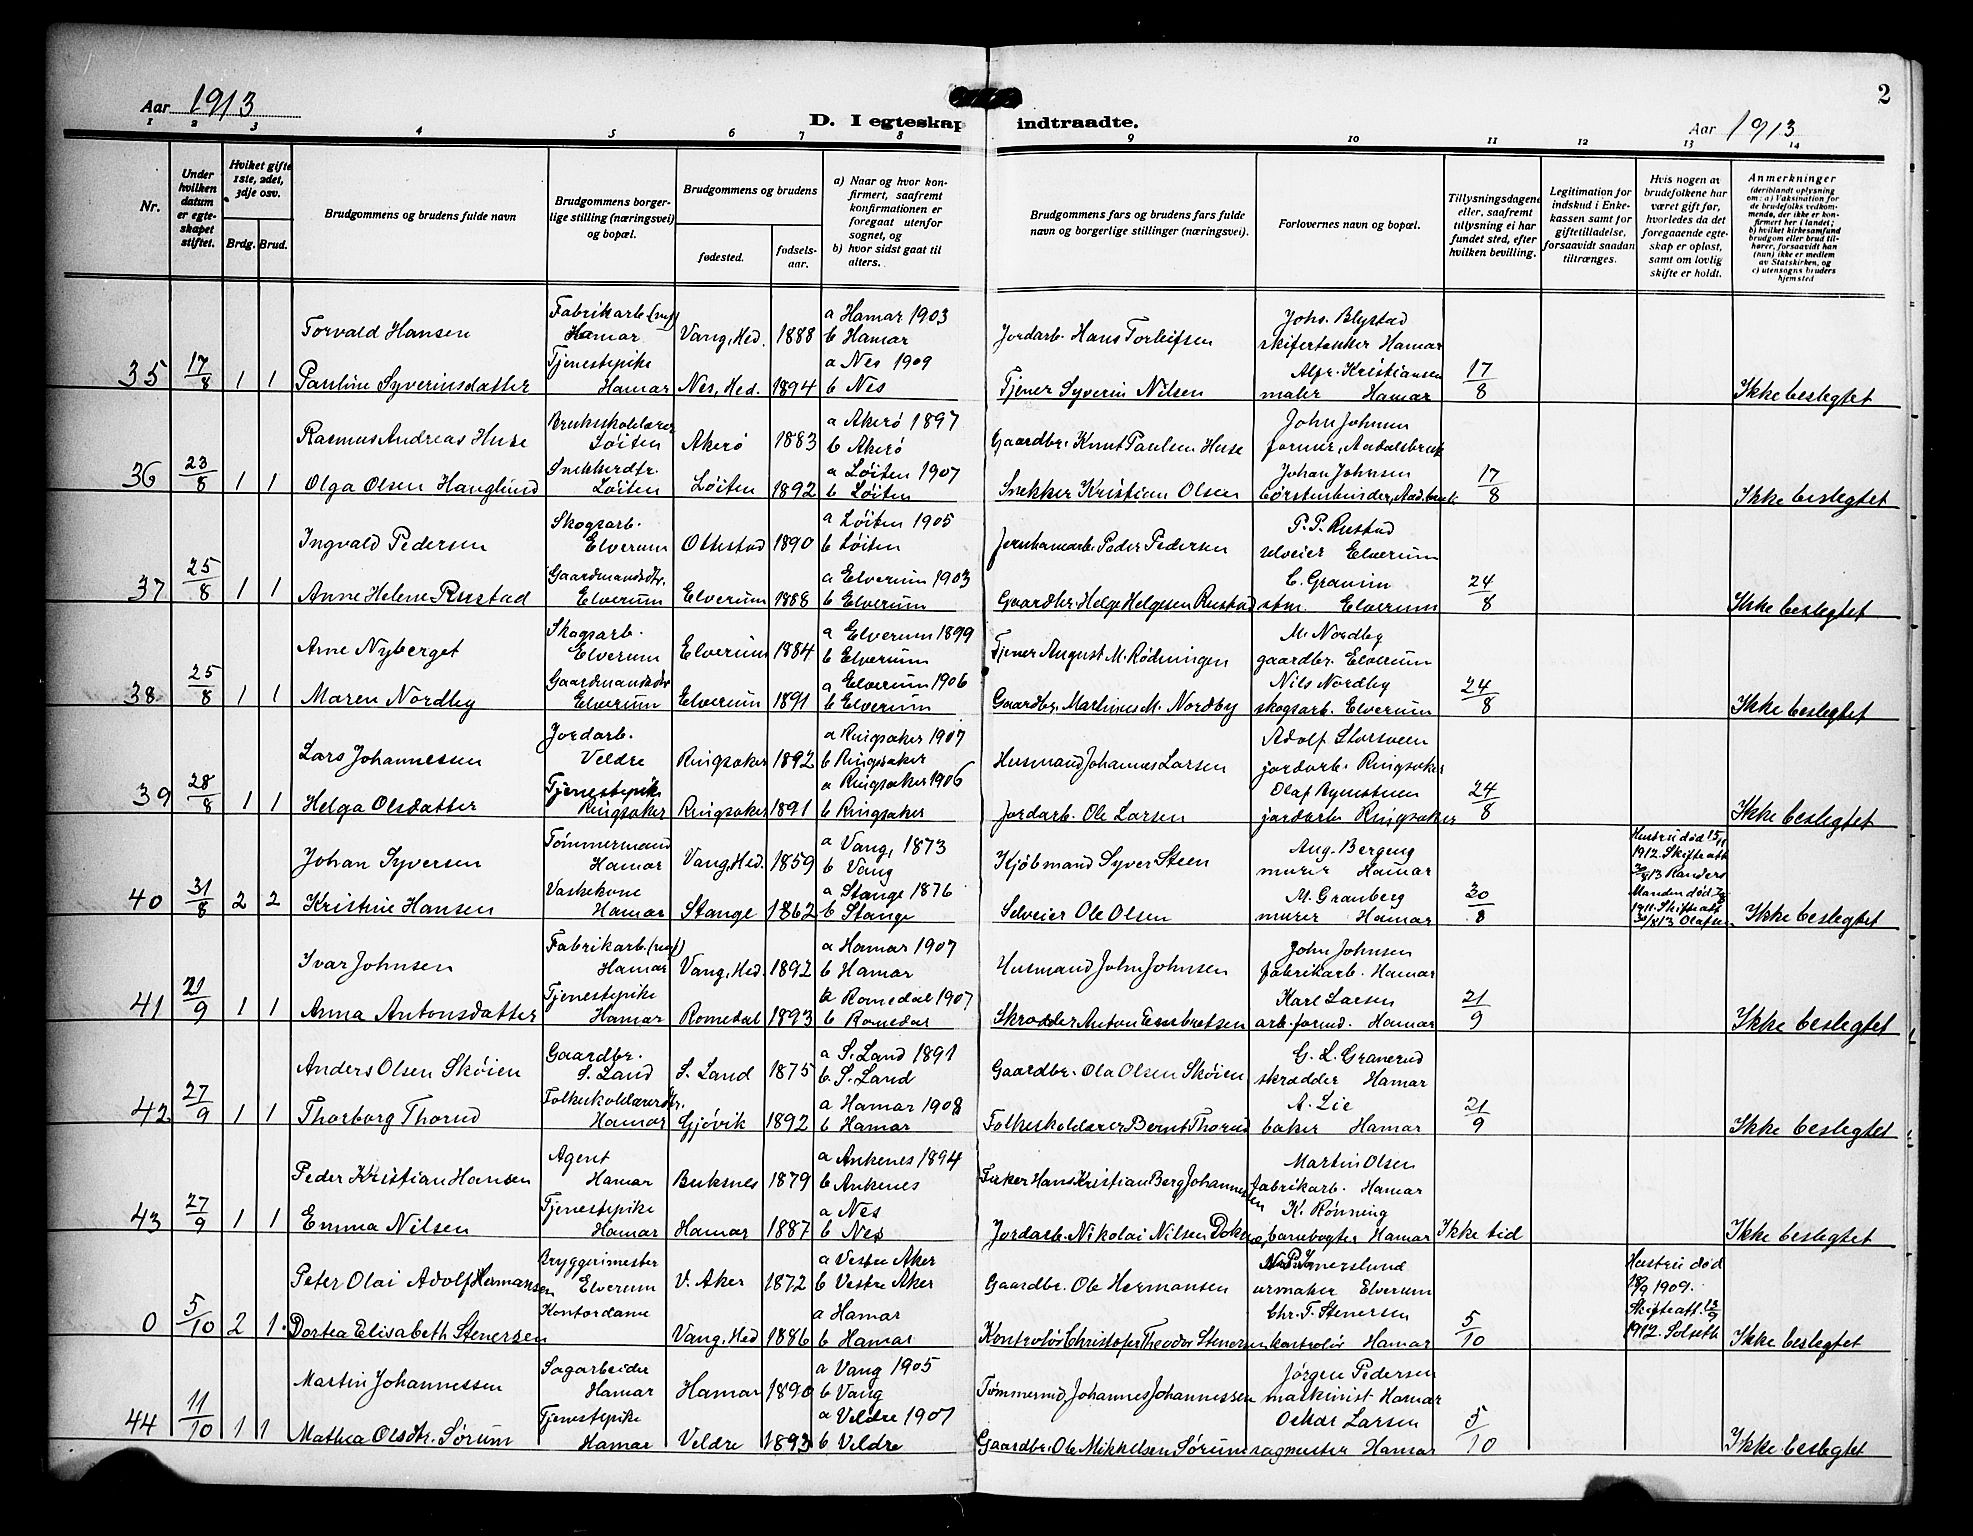 2
Aar 1913
D. I egteskap indtraadte.
Aar 1913
1 2 3 4 5 6 7 8 9 10 11 12 13 14
Nr.
Under hvilken datum er egteskapet stiftet.
Hvilket gifte 1ste, 2det, 3dje osv.
Brdg. Brud.
Brudgommens og brudens fulde navn
Brudgommens borgerlige stilling (næringsvei) og bopæl.
Brudgommens og brudens
fødested.
fødselsaar.
a) Naar og hvor konfirmert, saafremt konfirmationen er foregaat utenfor sognet, og
b) hvor sidst gaat til alters.
Brudgommens fars og brudens fars fulde navn og borgerlige stillinger (næringsvei).
Forlovernes navn og bopæl.
Tillysningsdagene eller, saafremt tillysning ei har fundet sted, efter hvilken bevilling.
Legitimation for indskud i Enkekassen samt for giftetilladelse, forsaavidt saadan tiltrænges.
Hvis nogen av brudefolkene har været gift før, hvorledes da det foregaaende egteskap er opløst, samt om lovlig skifte er holdt.
Anmerkninger (deriblandt oplysning om: a) Vaksination for de brudefolks vedkommende, der ikke er konfirmert her i landet; b) hvilket kirkesamfund brudgom eller brud tilhører, forsaavidt han (hun) ikke er medlem av Statskirken, og c) utensogns bruders hjemsted
Torvald Hansen Fabrikarb. Hamar Vang, Hed. 1888 a Hamar 1903 b Hamar Jordarb. Hans Torleifsen Johs. Blystad skifertækker Hamar
35 17/8 1 1 Pauline Syverinsdatter Tjenestepike Hamar Nes, Hed. 1894 a Nes 1909 b Nes Tjener Syverin Nilsen Alfr. Kristiansen maler Hamar 17/8 Ikke beslegtet
Rasmus Andreas Huse Brukskolelærer Løiten Akerø 1883 a Akerø 1897 b Akerø Gaardbr. Knut Paulsen Huse John Johnsen former, Aadalsbruk
36 23/8 1 1 Olga Olsen Hauglund Snekkerdtr. Løiten Løiten 1892 a Løiten 1907 b Løiten Snekker Kristian Olsen Johan Johnsen børstenbinder, Aad.bruk. 17/8 Ikke beslegtet
Ingvald Pedersen Skogsarb. Elverum Ottestad 1890 a Løiten 1905 b Løiten Jernhamarb. Peder Pedersen P. P. Rustad selveier Elverum
37 25/8 1 1 Anne Helene Rustad Gaardmandsdtr. Elverum Elverum 1888 a Elverum 1903 b Elverum Gaardbr. Helge Helgesen Rustad Elverum 24/8 Ikke beslegtet
Arne Nyberget Skogsarb. Elverum Elverum 1884 a Elverum 1899 b Elverum Tjener August M. Rødningen M. Nordby gaardbr. Elverum
38 25/8 1 1 Maren Nordby Gaardmandsdtr. Elverum Elverum 1891 a Elverum 1906 b Elverum Gaardbr. Martinus M. Nordby Nils Nordby skogsarb. Elverum 24/8 Ikke beslegtet
Lars Johannesen Jordarb. Veldre Ringsaker 1892 a Ringsaker 1907 b Ringsaker Husmand Johannes Larsen Adolf Storsveen jordarb. Ringsaker
39 28/8 1 1 Helga Olsdatter Tjenestepike Ringsaker Ringsaker 1891 a Ringsaker 1906 b Ringsaker Jordarb. Ole Larsen Olaf jordarb. Ringsaker 24/8 Ikke beslegtet
Johan Syversen Tømmermand Hamar Vang, Hed. 1859 a Vang, 1873 b Vang Kjøbmand Syver Steen Aug. Bergeng murer Hamar Hustru død 15/11 1912. Skifteatt. 30/8 13 Randers
40 31/8 2 2 Kristine Hansen Vaskekone Hamar Stange 1862 a Stange 1876 b Stange Selveier Ole Olsen M. Granberg murer Hamar 30/8 Manden død 1911. Skifteatt. 30/8 13 Olafsen Ikke beslegtet
Ivar Johnsen Fabrikarb. Hamar Vang, Hed. 1892 a Hamar 1907 b Hamar Husmand John Johnsen John Johnsen fabrikarb. Hamar
41 21/9 1 1 Anna Antonsdatter Tjenestepike Hamar Romedal 1893 a Romedal 1907 b Romedal Skrædder Anton Embretsen Karl Larsen arb.formd. Hamar 21/9 Ikke beslegtet
Anders Olsen Skøien Gaardbr. S. Land S. Land 1875 a S. Land 1891 b S. Land Gaardbr. Ola Olsen Skøien G. L. Granerud skrædder Hamar
42 27/9 1 1 Thorborg Thorud Folkeskolelærerdtr. Hamar Gjøvik 1892 a Hamar 1908 b Hamar Folkeskolelærer Bernt Thorud A. Lie baker Hamar 21/9 Ikke beslegtet
Peder Kristian Hansen Agent Hamar Buksnes 1879 a Ankenes 1894 b Ankenes Fisker Hans Kristian Berg Johannessen Martin Olsen fabrikarb. Hamar
43 27/9 1 1 Emma Nilsen Tjenestepike Hamar Hamar 1887 a Nes b Nes Jordarb. Nikolai Nilsen K. Rønning Hamar Ikke tid Ikke beslegtet
Peter Olai Adolf Hermansen Bryggerimester Elverum V. Aker 1872 a Vestre Aker b Vestre Aker Gaardbr. Ole Hermansen urmaker Elverum Hustru død 18/9 1909.
0 5/10 2 1 Dortea Elisabeth Stenersen Kontordame Vang, Hed 1886 a Hamar b Hamar Kontrolør Christofer Theodor Stenersen Chr. T. Stenersen kontrolør Hamar 5/10 Skifteatt. 12/9 1912. Solseth Ikke beslegtet
Martin Johannessen Sagarbeider Hamar Hamar 1890 a Vang 1905 b Vang Tømmermd Johannes Johannessen Jørgen Pedersen maskinist Hamar
44 11/10 1 1 Mathea Olsdtr. Sørum Tjenestepike Hamar Veldre 1893 a Veldre 1907 b Veldre Gaardbr. Ole Mikkelsen Sørum Oskar Larsen sagmester Hamar 5/10 Ikke beslegtet